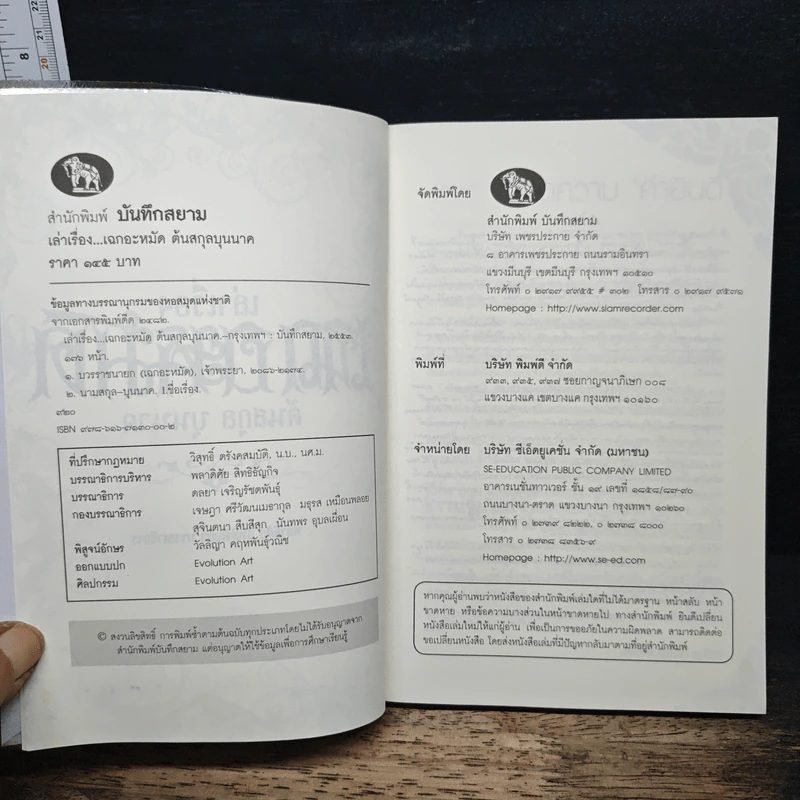 8
20
21
สำนักพิมพ์ บันทึกสยาม
เล่าเรื่อง...เฉกอะหมัด ต้นสกุลบุนนาค
ราคา ๑๔๕ บาท
ข้อมูลทางบรรณานุกรมของหอสมุดแห่งชาติ
จากเอกสารพิมพ์ดีด ๒๔๘๒.
เล่าเรื่อง...เฉกอะหมัด ต้นสกุลบุนนาค.--กรุงเทพฯ : บันทึกสยาม, ๒๕๕๓.
๑๗๖ หน้า.
๑. บวรราชนายก (เฉกอะหมัด), เจ้าพระยา, ๒๐๘๖-๒๑๗๔.
๒. นามสกุล--บุนนาค. I.ชื่อเรื่อง.
๙๒๐
ISBN ๙๗๘-๖๑๖-๗๑๓๐-๐๐-๒
ที่ปรึกษากฎหมาย วิสุทธิ์ ตรังคสมบัติ, น.บ., นศ.ม.
บรรณาธิการบริหาร พลาดิศัย สิทธิธัญกิจ
บรรณาธิการ ดลยา เจริญรัชตพันธุ์
กองบรรณาธิการ เจษฎา ศรีวัฒนเมธากุล มธุรส เหมือนพลอย
สุจินตนา สืบสีสุก นันทพร อุบลเผื่อน
พิสูจน์อักษร วัลลิญา คฤหพันธุ์วณิช
ออกแบบปก Evolution Art
ศิลปกรรม Evolution Art
© สงวนลิขสิทธิ์ การพิมพ์ซ้ำตามต้นฉบับทุกประเภทโดยไม่ได้รับอนุญาตจาก
สำนักพิมพ์บันทึกสยาม แต่อนุญาตให้ใช้ข้อมูลเพื่อการศึกษาเรียนรู้
จัดพิมพ์โดย
สำนักพิมพ์ บันทึกสยาม
บริษัท เพชรประกาย จำกัด
๘ อาคารเพชรประกาย ถนนรามอินทรา
แขวงมีนบุรี เขตมีนบุรี กรุงเทพฯ ๑๐๕๑๐
โทรศัพท์ ๐ ๒๙๑๗ ๙๙๕๕ # ๓๐๒ โทรสาร ๐ ๒๙๑๗ ๙๕๗๑
Homepage : http://www.siamrecorder.com
พิมพ์ที่ บริษัท พิมพ์ดี จำกัด
๙๓๓, ๙๓๕, ๙๓๗ ซอยกาญจนาภิเษก ๐๐๘
แขวงบางแค เขตบางแค กรุงเทพฯ ๑๐๑๖๐
จำหน่ายโดย บริษัท ซีเอ็ดยูเคชั่น จำกัด (มหาชน)
SE-EDUCATION PUBLIC COMPANY LIMITED
อาคารเนชั่นทาวเวอร์ ชั้น ๑๙ เลขที่ ๑๘๕๘/๘๗-๙๐
ถนนบางนา-ตราด แขวงบางนา กรุงเทพฯ ๑๐๒๖๐
โทรศัพท์ ๐ ๒๗๓๙ ๘๒๒๒, ๐ ๒๗๓๘ ๘๐๐๐
โทรสาร ๐ ๒๗๓๘ ๘๓๕๖-๙
Homepage : http://www.se-ed.com
หากคุณผู้อ่านพบว่าหนังสือของสำนักพิมพ์เล่มใดที่ไม่ได้มาตรฐาน หน้าสลับ หน้า
ขาดหาย หรือข้อความบางส่วนในหน้าขาดหายไป ทางสำนักพิมพ์ ยินดีเปลี่ยน
หนังสือเล่มใหม่ให้แก่ผู้อ่าน เพื่อเป็นการขออภัยในความผิดพลาด สามารถติดต่อ
ขอเปลี่ยนหนังสือ โดยส่งหนังสือเล่มที่มีปัญหากลับมาตามที่อยู่สำนักพิมพ์